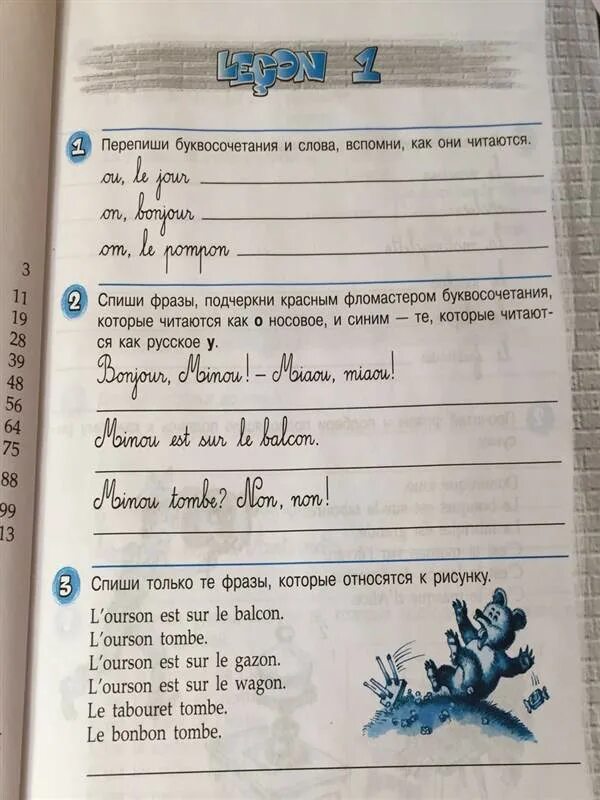 LEÇON 1
1 Перепиши буквосочетания и слова, вспомни, как они читаются.
ou, le jour
on, bonjour
om, le pompon
2 Спиши фразы, подчеркни красным фломастером буквосочетания,
которые читаются как о носовое, и синим — те, которые читают-
ся как русское у.
Bonjour, Minou! – Miaou, miaou!
Minou est sur le balcon.
Minou tombe? Non, non!
3 Спиши только те фразы, которые относятся к рисунку.
L'ourson est sur le balcon.
L'ourson tombe.
L'ourson est sur le gazon.
L'ourson est sur le wagon.
Le tabouret tombe.
Le bonbon tombe.
3
11
19
28
39
48
56
64
75
88
99
13